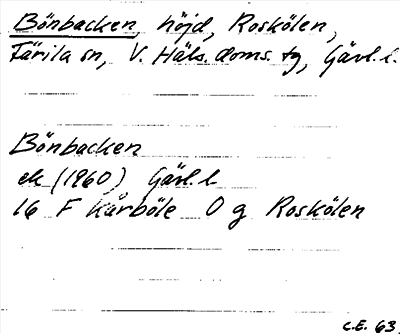 Bönbacken, höjd, Roskölen,
Färila sn, V. Häls. doms. tg, Gävl. l.
Bönbacken
ek (1960), Gävl. l
16 F Kårböle O g Roskölen
C.E. 63